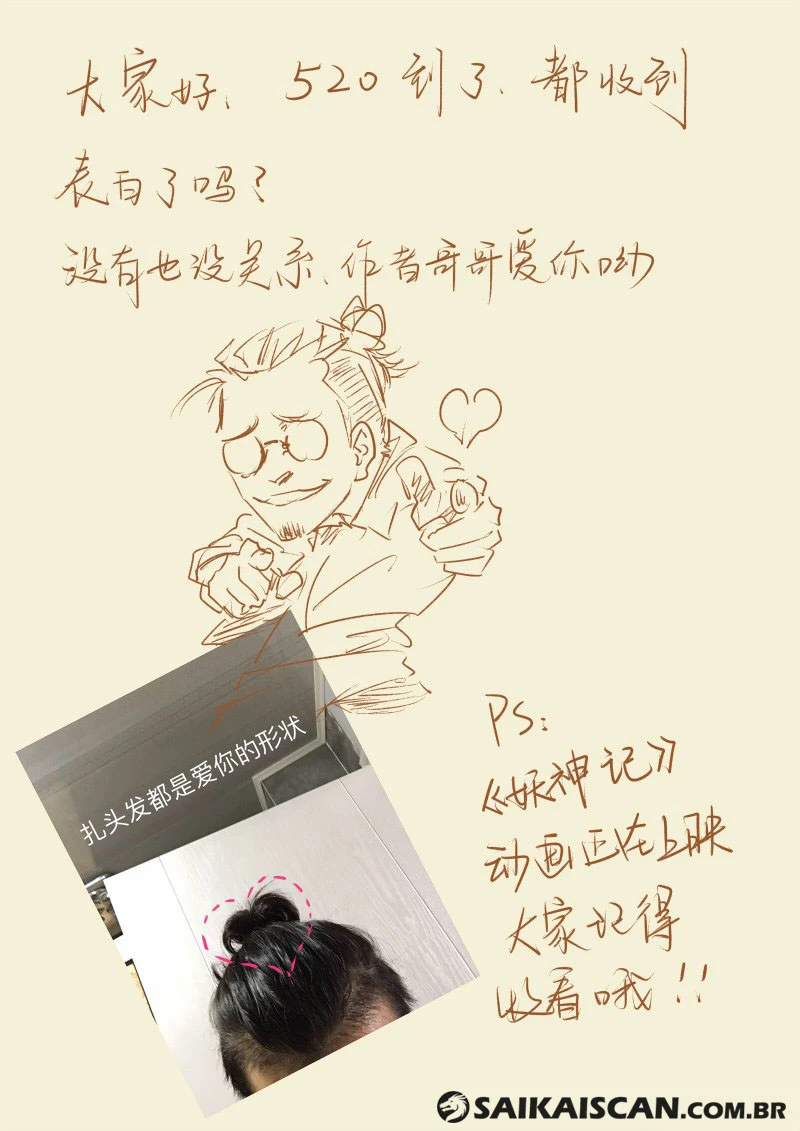 大家好、520到了、都收到
表白了吗？
没有也没关系、作者哥哥爱你呦
扎头发都是爱你的形状
PS:
《妖神记》
动画正在上映
大家记得
收看哦！！
SAIKAISCAN.COM.BR